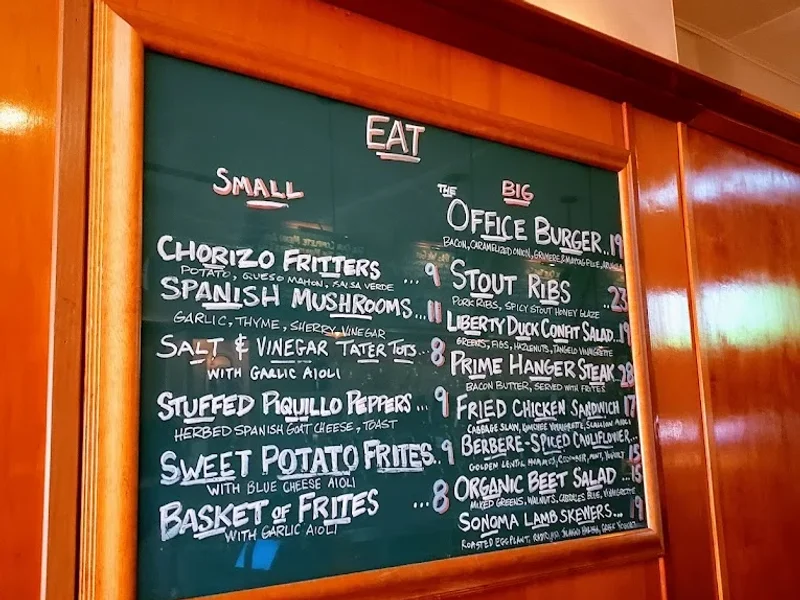 EAT
SMALL
CHORIZO FRITTERS ... 9
POTATO, QUESO MAHON, SALSA VERDE
SPANISH MUSHROOMS... 11
GARLIC, THYME, SHERRY VINEGAR
SALT & VINEGAR TATER TOTS... 8
WITH GARLIC AIOLI
STUFFED PIQUILLO PEPPERS ... 9
HERBED SPANISH GOAT CHEESE, TOAST
SWEET POTATO FRITES.. 9
WITH BLUE CHEESE AIOLI
BASKET OF FRITES ... 8
WITH GARLIC AIOLI
BIG
THE OFFICE BURGER.. 19
BACON, CARAMELIZED ONION, GRUYERE & MAYTAG BLUE, ARUGULA
STOUT RIBS ..23
PORK RIBS, SPICY STOUT HONEY GLAZE
LIBERTY DUCK CONFIT SALAD.. 19
GREENS, FIGS, HAZELNUTS, TANGELO VINAIGRETTE
PRIME HANGER STEAK 28
BACON BUTTER, SERVED WITH FRITES
FRIED CHICKEN SANDWICH 17
CABBAGE SLAW, VINAIGRETTE, SCALLION AIOLI
BERBERE-SPICED CAULIFLOWER... 15
GOLDEN LENTIL HUMMUS, CUCUMBER, MINT, YOGURT
ORGANIC BEET SALAD ...15
MIXED GREENS, WALNUTS, BLUE, VINAIGRETTE
SONOMA LAMB SKEWERS... 19
ROASTED EGGPLANT, GREEK YOGURT